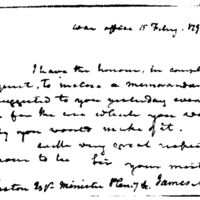 War office 15 Feby. 179
I have the honour, in compl
quest, to inclose a memorandum
suggested to you yesterday even
for the use which you wo
you would make of it.
with very great respect
honour to be Sir your most
Minister Pleny &c. James M